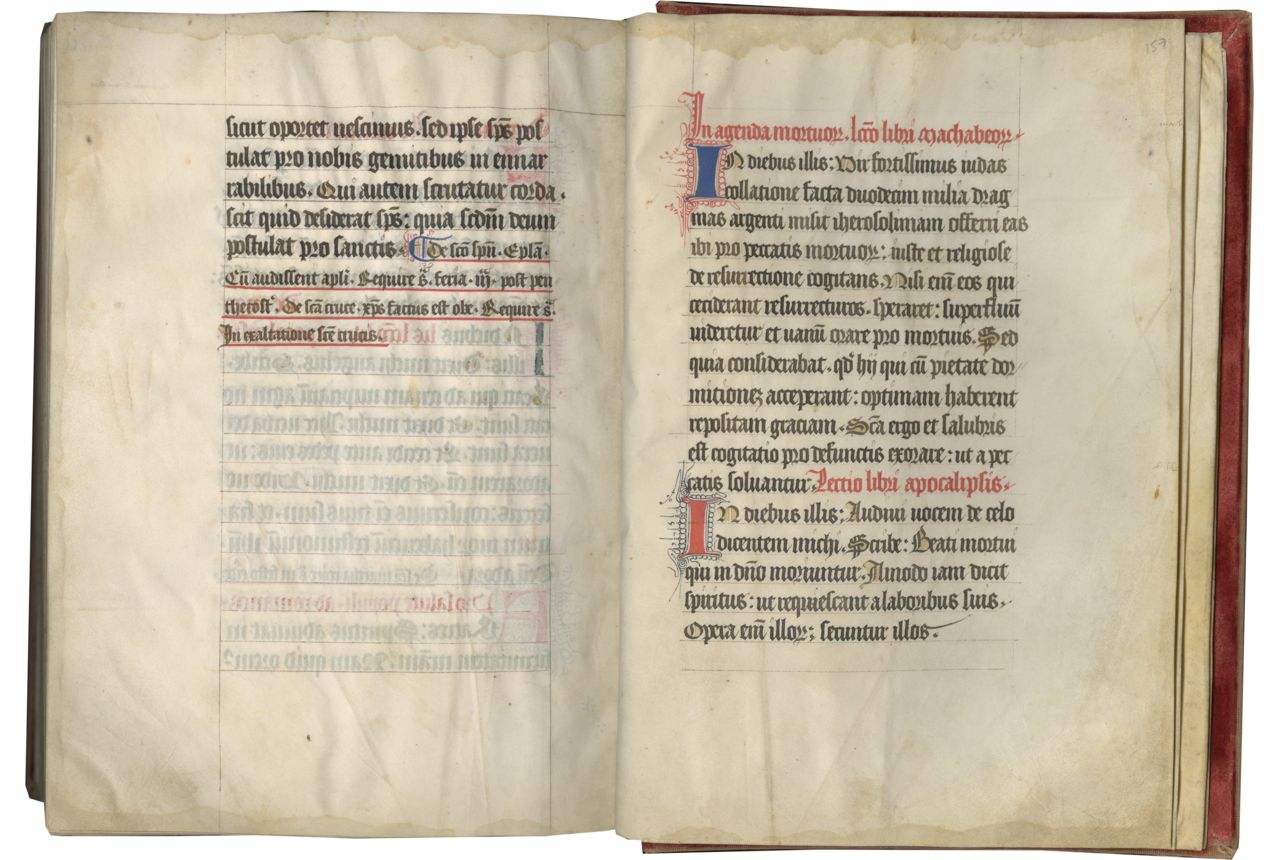 sicut oportet nescimus. sed ipse sps pos
tulat pro nobis gemitibus in ennar
rabilibus. Qui autem scrutatur corda.
scit quid desiderat sps: quia scdm deum
postulat pro sanctis. De sco spu. Epla.
Cu audissent apli. Require s. feria. iij. post pen
thecost. De sca cruce. xps factus est obe. Require s.
In exaltatione sce crucis.
157
In agenda mortuor. lcco libri Machabeor
IN diebus illis: Vir fortissimus iudas
collatione facta duodecim milia drag
mas argenti misit iherosolimam offerri eas
ibi pro peccatis mortuor: iuste et religiose
de resurrectione cogitans. Nisi eni eos qui
ceciderant resurrecturos. speraret: superfluu
videretur et uanu orare pro mortuis. Sed
quia considerabat. qd hij qui cu pietate dor
mitionez acceperant: optimam haberent
repositam graciam. Sca ergo et salubris
est cogitatio pro defunctis exorare: ut a pec
catis soluantur. Lectio libri apocalipsis.
IN diebus illis: Audiui uocem de celo
dicentem michi. Scribe: Beati mortui
qui in dno moriuntur. Amodo iam dicit
spiritus: ut requiescant a laboribus suis.
Opera eni illor: secuntur illos.